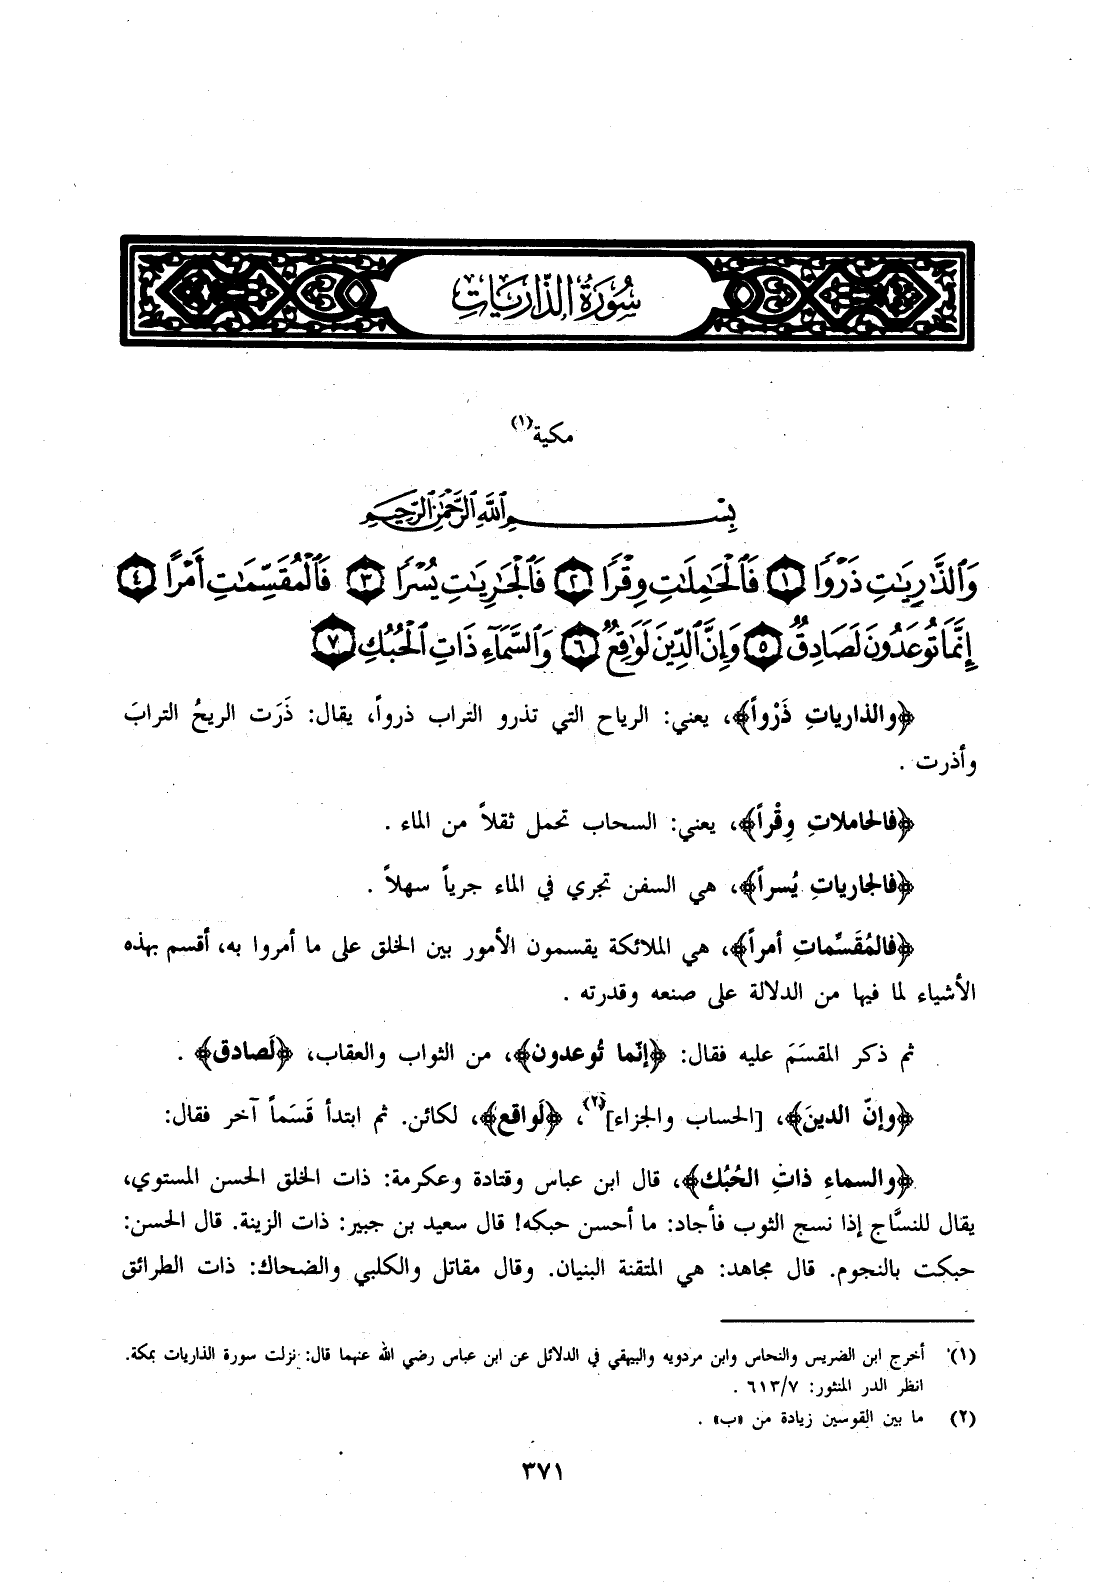 سُورَةُ الذَّارِيَاتِ
مكية(١)
بِسْمِ ٱللَّهِ ٱلرَّحْمَٰنِ ٱلرَّحِيمِ
وَٱلذَّٰرِيَٰتِ ذَرْوًا ١ فَٱلْحَٰمِلَٰتِ وِقْرًا ٢ فَٱلْجَٰرِيَٰتِ يُسْرًا ٣ فَٱلْمُقَسِّمَٰتِ أَمْرًا ٤
إِنَّمَا تُوعَدُونَ لَصَادِقٌ ٥ وَإِنَّ ٱلدِّينَ لَوَٰقِعٌ ٦ وَٱلسَّمَآءِ ذَاتِ ٱلْحُبُكِ ٧
﴿والذارياتِ ذَرْواً﴾، يعني: الرياح التي تذرو التراب ذرواً، يقال: ذَرَت الريحُ الترابَ
وأذرت .
﴿فالحاملاتِ وِقْراً﴾، يعني: السحاب تحمل ثقلاً من الماء .
﴿فالجارياتِ يُسراً﴾، هي السفن تجري في الماء جرياً سهلاً .
﴿فالمُقَسِّماتِ أمراً﴾، هي الملائكة يقسمون الأمور بين الخلق على ما أمروا به، أقسم بهذه
الأشياء لما فيها من الدلالة على صنعه وقدرته .
ثم ذكر المقسَمَ عليه فقال: ﴿إنّما تُوعدون﴾، من الثواب والعقاب، ﴿لَصادق﴾ .
﴿وإنّ الدينَ﴾، [الحساب والجزاء](٢)، ﴿لَواقع﴾، لكائن. ثم ابتدأ قَسَماً آخر فقال:
﴿والسماءِ ذاتِ الحُبُك﴾، قال ابن عباس وقتادة وعكرمة: ذات الخلق الحسن المستوي،
يقال للنسَّاج إذا نسج الثوب فأجاد: ما أحسن حبكه! قال سعيد بن جبير: ذات الزينة. قال الحسن:
حبكت بالنجوم. قال مجاهد: هي المتقنة البنيان. وقال مقاتل والكلبي والضحاك: ذات الطرائق
(١) أخرج ابن الضريس والنحاس وابن مردويه والبيهقي في الدلائل عن ابن عباس رضي الله عنهما قال: نزلت سورة الذاريات بمكة.
انظر الدر المنثور: ٦١٣/٧ .
(٢) ما بين القوسين زيادة من «ب» .
٣٧١